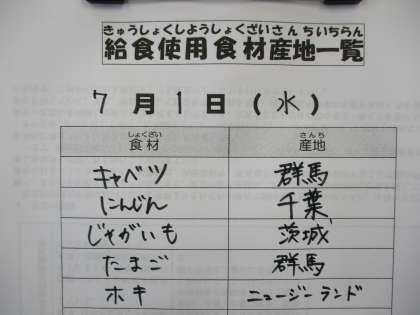 きゅうしょくしようしょくざいさんちいちらん
給食使用食材産地一覧
7月1日(水)
しょくざい さんち
食材 産地
キャベツ 群馬
にんじん 千葉
じゃがいも 茨城
たまご 群馬
ホキ ニュージーランド